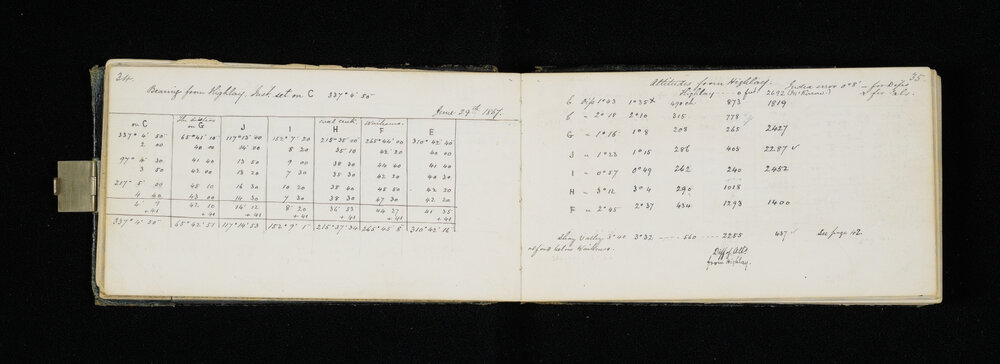 34.
Bearings from Highlay. Inst. set on C 337° 4' 50"
June 29th 1867.
on C on G J I H F E
337° 4' 50" 65° 41' 10" 117° 13' 40" 152° 7' 20" 215° 35' 00" 265° 44' 00" 310° 42' 40"
2 00 40 00 14 00 8 20 35 10 43 20 40 00
97° 4' 30 41 40 13 50 9 00 38 30 44 40 41 40
3 50 42 00 13 20 7 30 35 30 42 20 40 30
217° 5' 00 45 10 16 30 10 20 38 40 45 50 43 20
4 40 43 00 14 30 7 30 38 30 47 30 42 20
4' 9 42 10 14' 12 8' 20 36' 53 44 27 41 35
+41 +41 +41 +41 +41 +41
337° 4' 30" 65° 42' 51 117° 14' 53 152° 9' 1" 215° 37' 34 265° 45' 8 310° 42' 16"
35.
Altitudes from Highlay. Index error 0° 8' - for Deps
Highlay ---- 0 feet 2692 + for Eels.
C Dip 1° 43 1° 35 490 ch 873 1819
C - 2° 18 2° 10 315 778
G - 1° 16 1° 8 208 265 2427
J - 1° 23 1° 15 286 405 2287 ✓
I - 0° 57 0° 49 262 240 2452
H - 3° 12 3° 4 290 1018
F - 2° 45 2° 37 434 1293 1400
Valley 3° 40 3° 32 ---- 560 --- 2255 437 ✓ See page 42.
below
Diff of Alts
from Highlay.